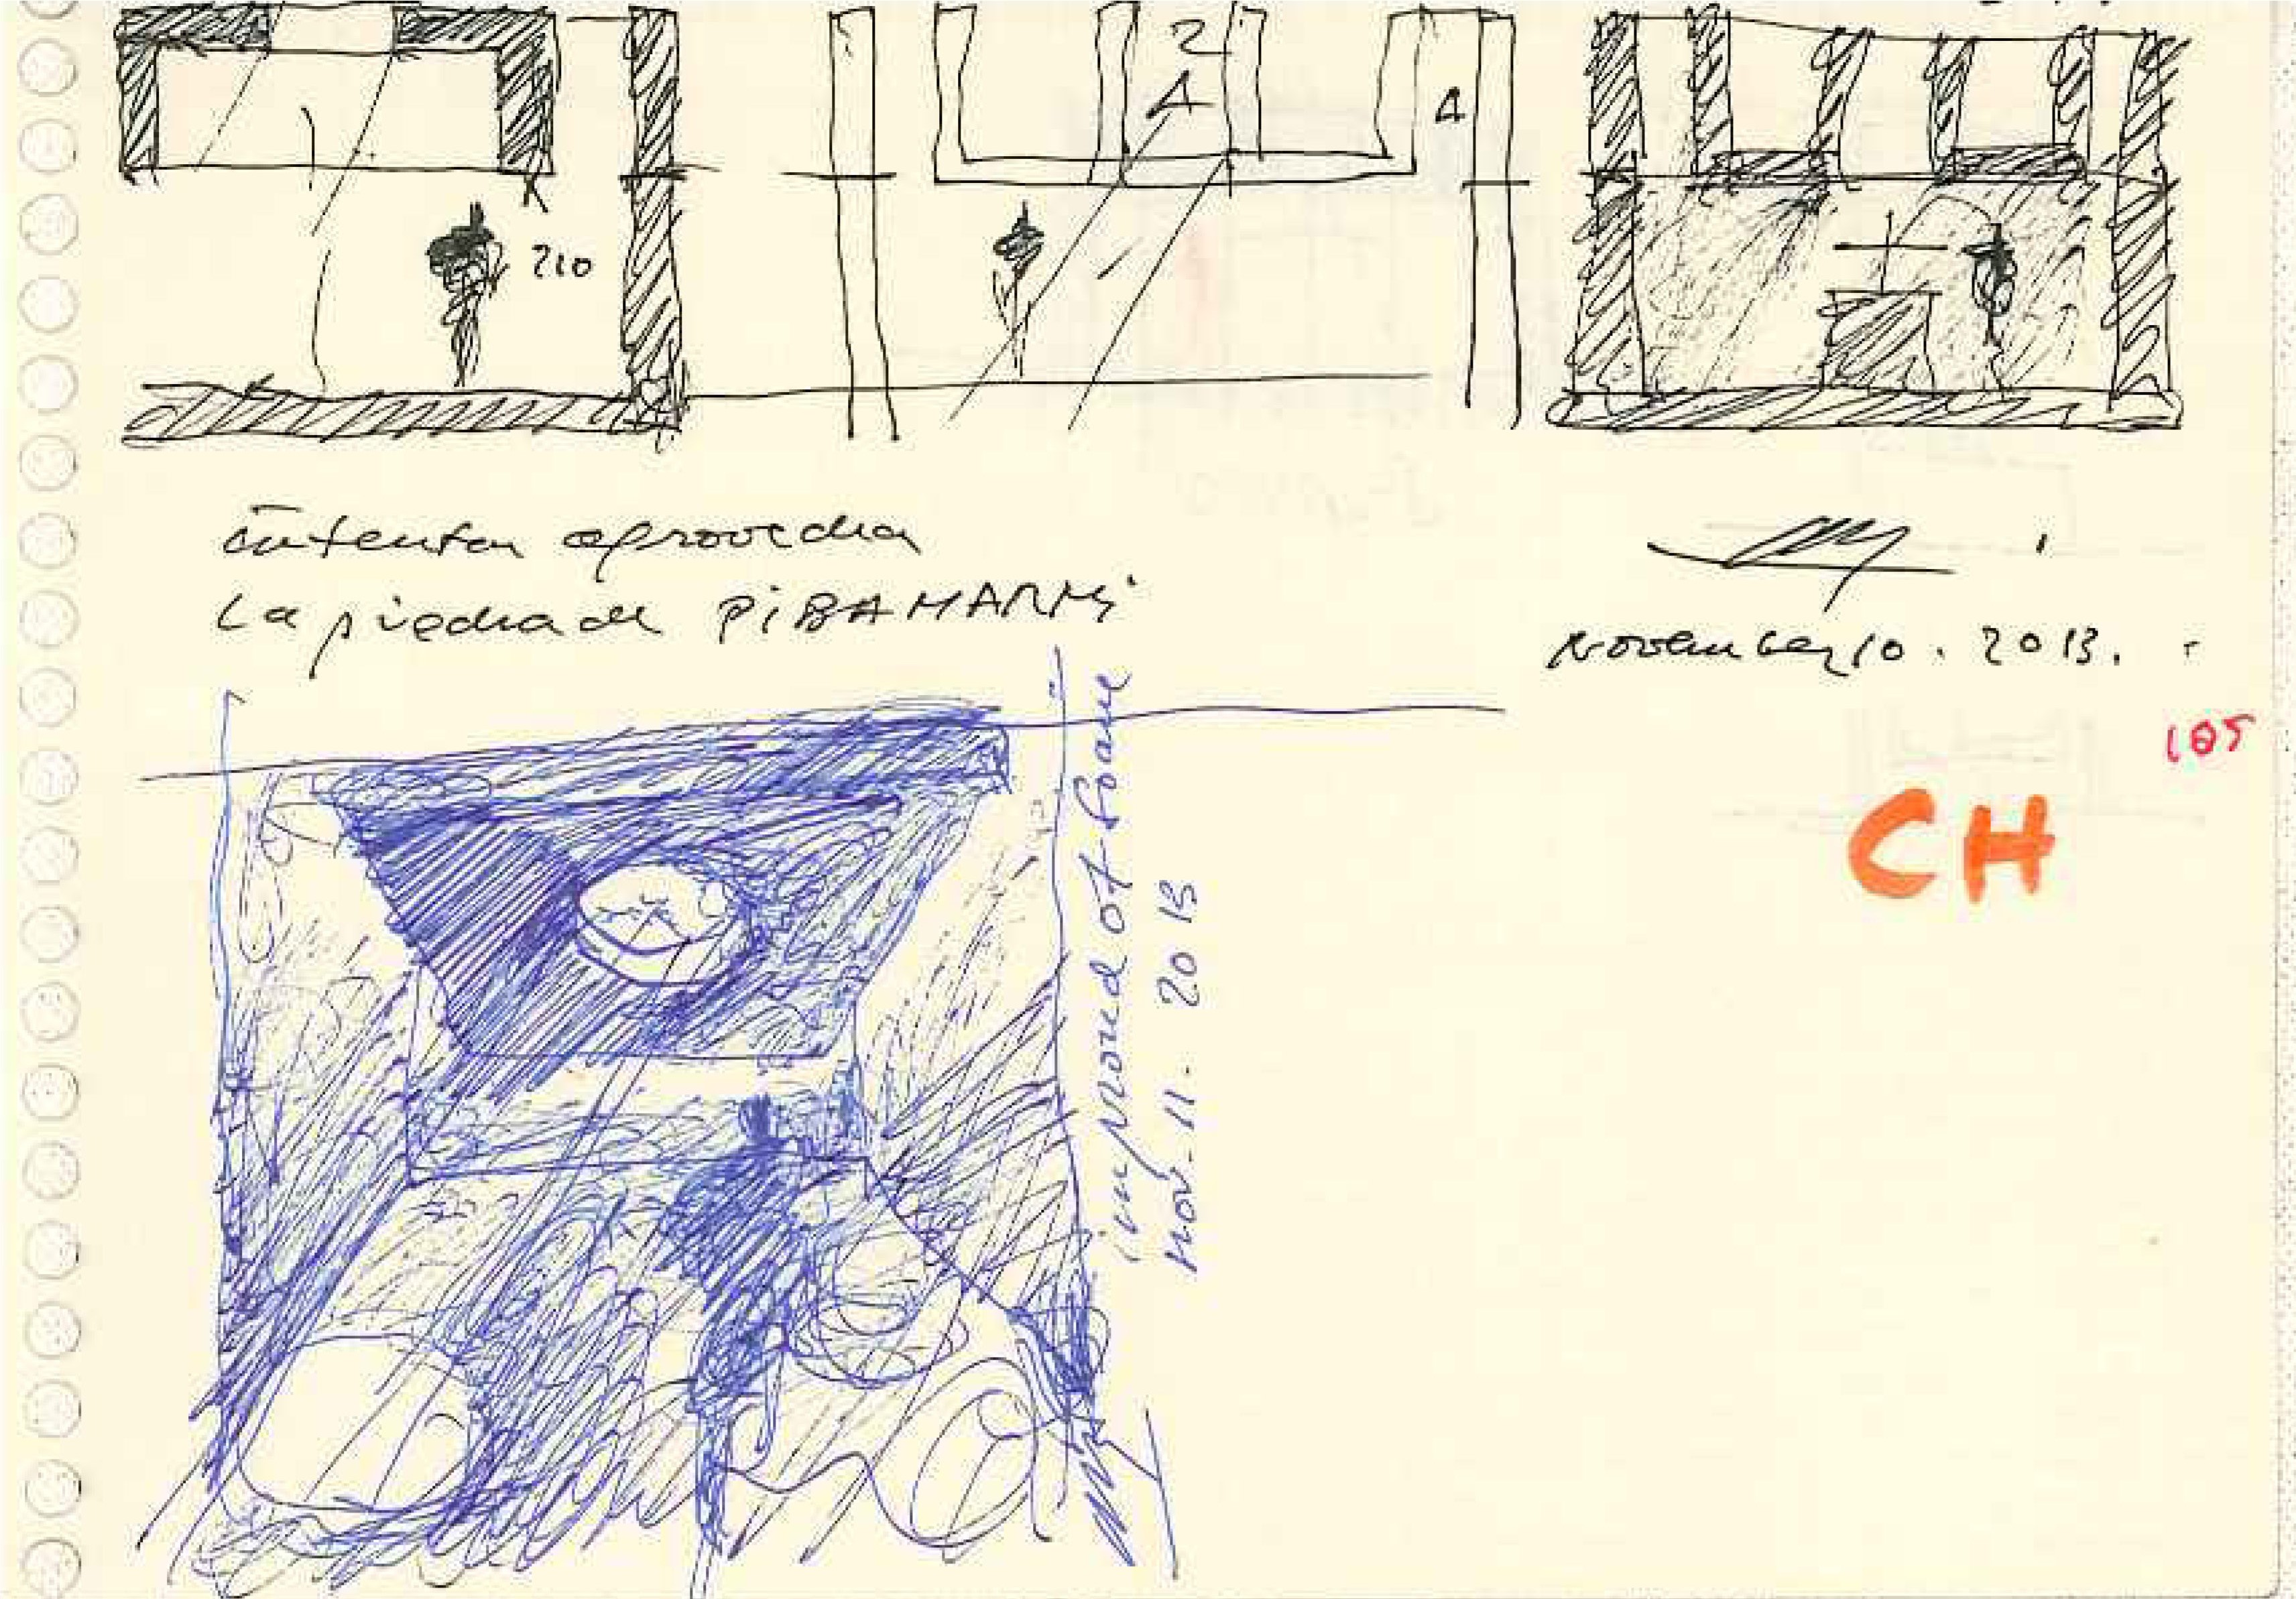 2
A
A
210
intentar aprovechar
La piedra de PIBAMARMI
November 10. 2013.
105
CH
improved at
nov. 11. 2013